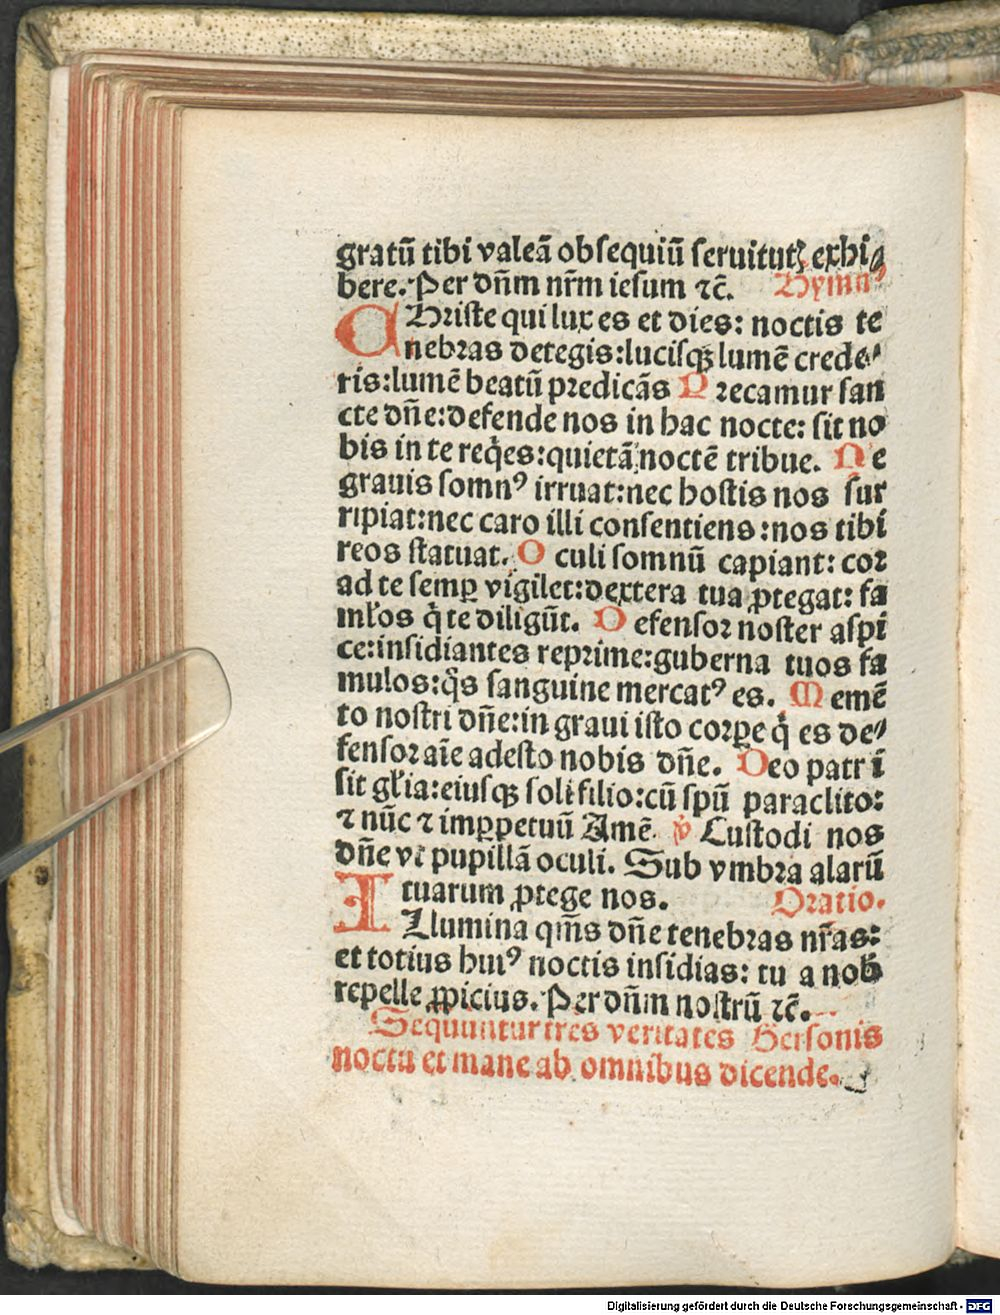 gratū tibi valeā obsequiū seruitutꝫ exhi⸗
bere. Per dn̄m nr̄m iesum ⁊c̄. Hymnꝰ
CHriste qui lux es et dies: noctis te
nebras detegis: lucisqꝫ lumē crede⸗
ris: lumē beatū predicās Precamur san
cte dn̄e: defende nos in hac nocte: sit no
bis in te reqͥes: quietā noctē tribue. Ne
grauis somnꝰ irruat: nec hostis nos sur
ripiat: nec caro illi consentiens: nos tibi
reos statuat. Oculi somnū capiant: cor
ad te semꝑ vigilet: dextera tua ꝓtegat: fa
ml̓os qͥ te diligūt. Defensor noster aspi
ce: insidiantes reprime: guberna tuos fa
mulos: qͦs sanguine mercatꝰ es. Memē
to nostri dn̄e: in graui isto corꝑe qͥ es de⸗
fensor aīe adesto nobis dn̄e. Deo patri
sit gl̓ia: eiusqꝫ soli filio: cū spū paraclito:
⁊ nūc ⁊ imꝑpetuū Amē. ℣ Custodi nos
dn̄e vt pupillā oculi. Sub vmbra alarū
tuarum ꝓtege nos. Oratio.
ILlumina qm̄s dn̄e tenebras nr̄as:
et totius huiꝰ noctis insidias: tu a nob̓
repelle ꝓpicius. Per dn̄m nostrū ⁊c̄.
Sequuntur tres veritates Gersonis
noctu et mane ab omnibus dicende.
Digitalisierung gefördert durch die Deutsche Forschungsgemeinschaft - DFG